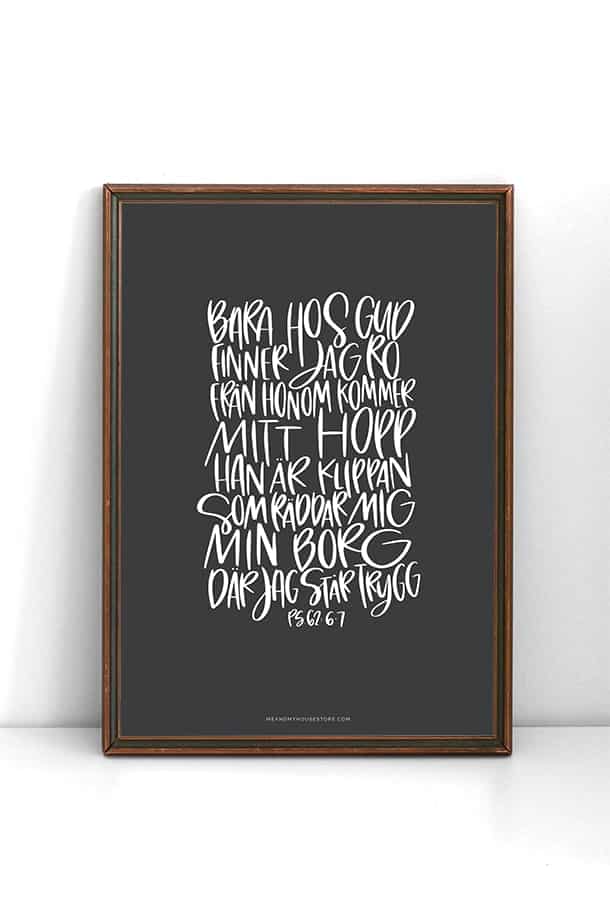 BARA HOS GUD
FINNER JAG RO
FRÅN HONOM KOMMER
MITT HOPP
HAN ÄR KLIPPAN
SOM RÄDDAR MIG
MIN BORG
DÄR JAG STÅR TRYGG
PS 62 6-7
MEANDMYHOUSESTORE.COM